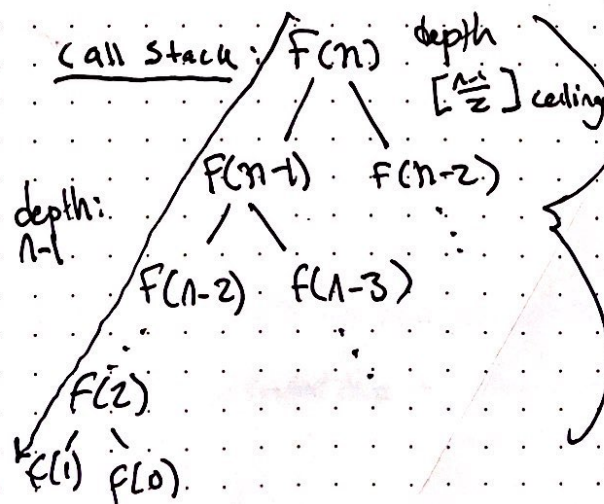 Call Stack: F(n) depth
[n-1/2] ceiling
F(n-1) F(n-2)
depth:
n-1
F(n-2) f(n-3)
F(2)
f(1) f(0)